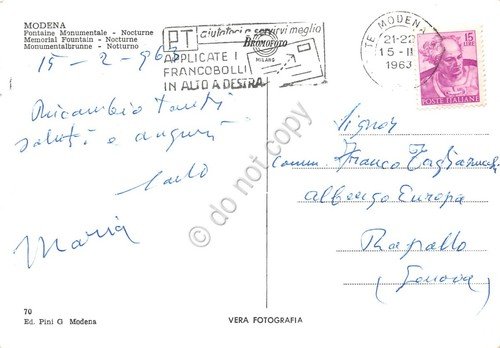 MODENA
Fontaine Monumentale - Nocturne
Memorial Fountain - Nocturne
Monumentalbrunne - Notturno
15-2-963
Ricambio tanti
saluti e auguri
Carlo
Maria
70
Ed. Pini G Modena
VERA FOTOGRAFIA
PT aiutateci a servirvi meglio
APPLICATE I
FRANCOBOLLI
IN ALTO A DESTRA
BROMOFOTO
MILANO
TE MODENA
21-22
15-II
1963
15
LIRE
POSTE ITALIANE
Signor
Comm. Franco
Albergo Europa
Rapallo
(Genova)
© do not copy